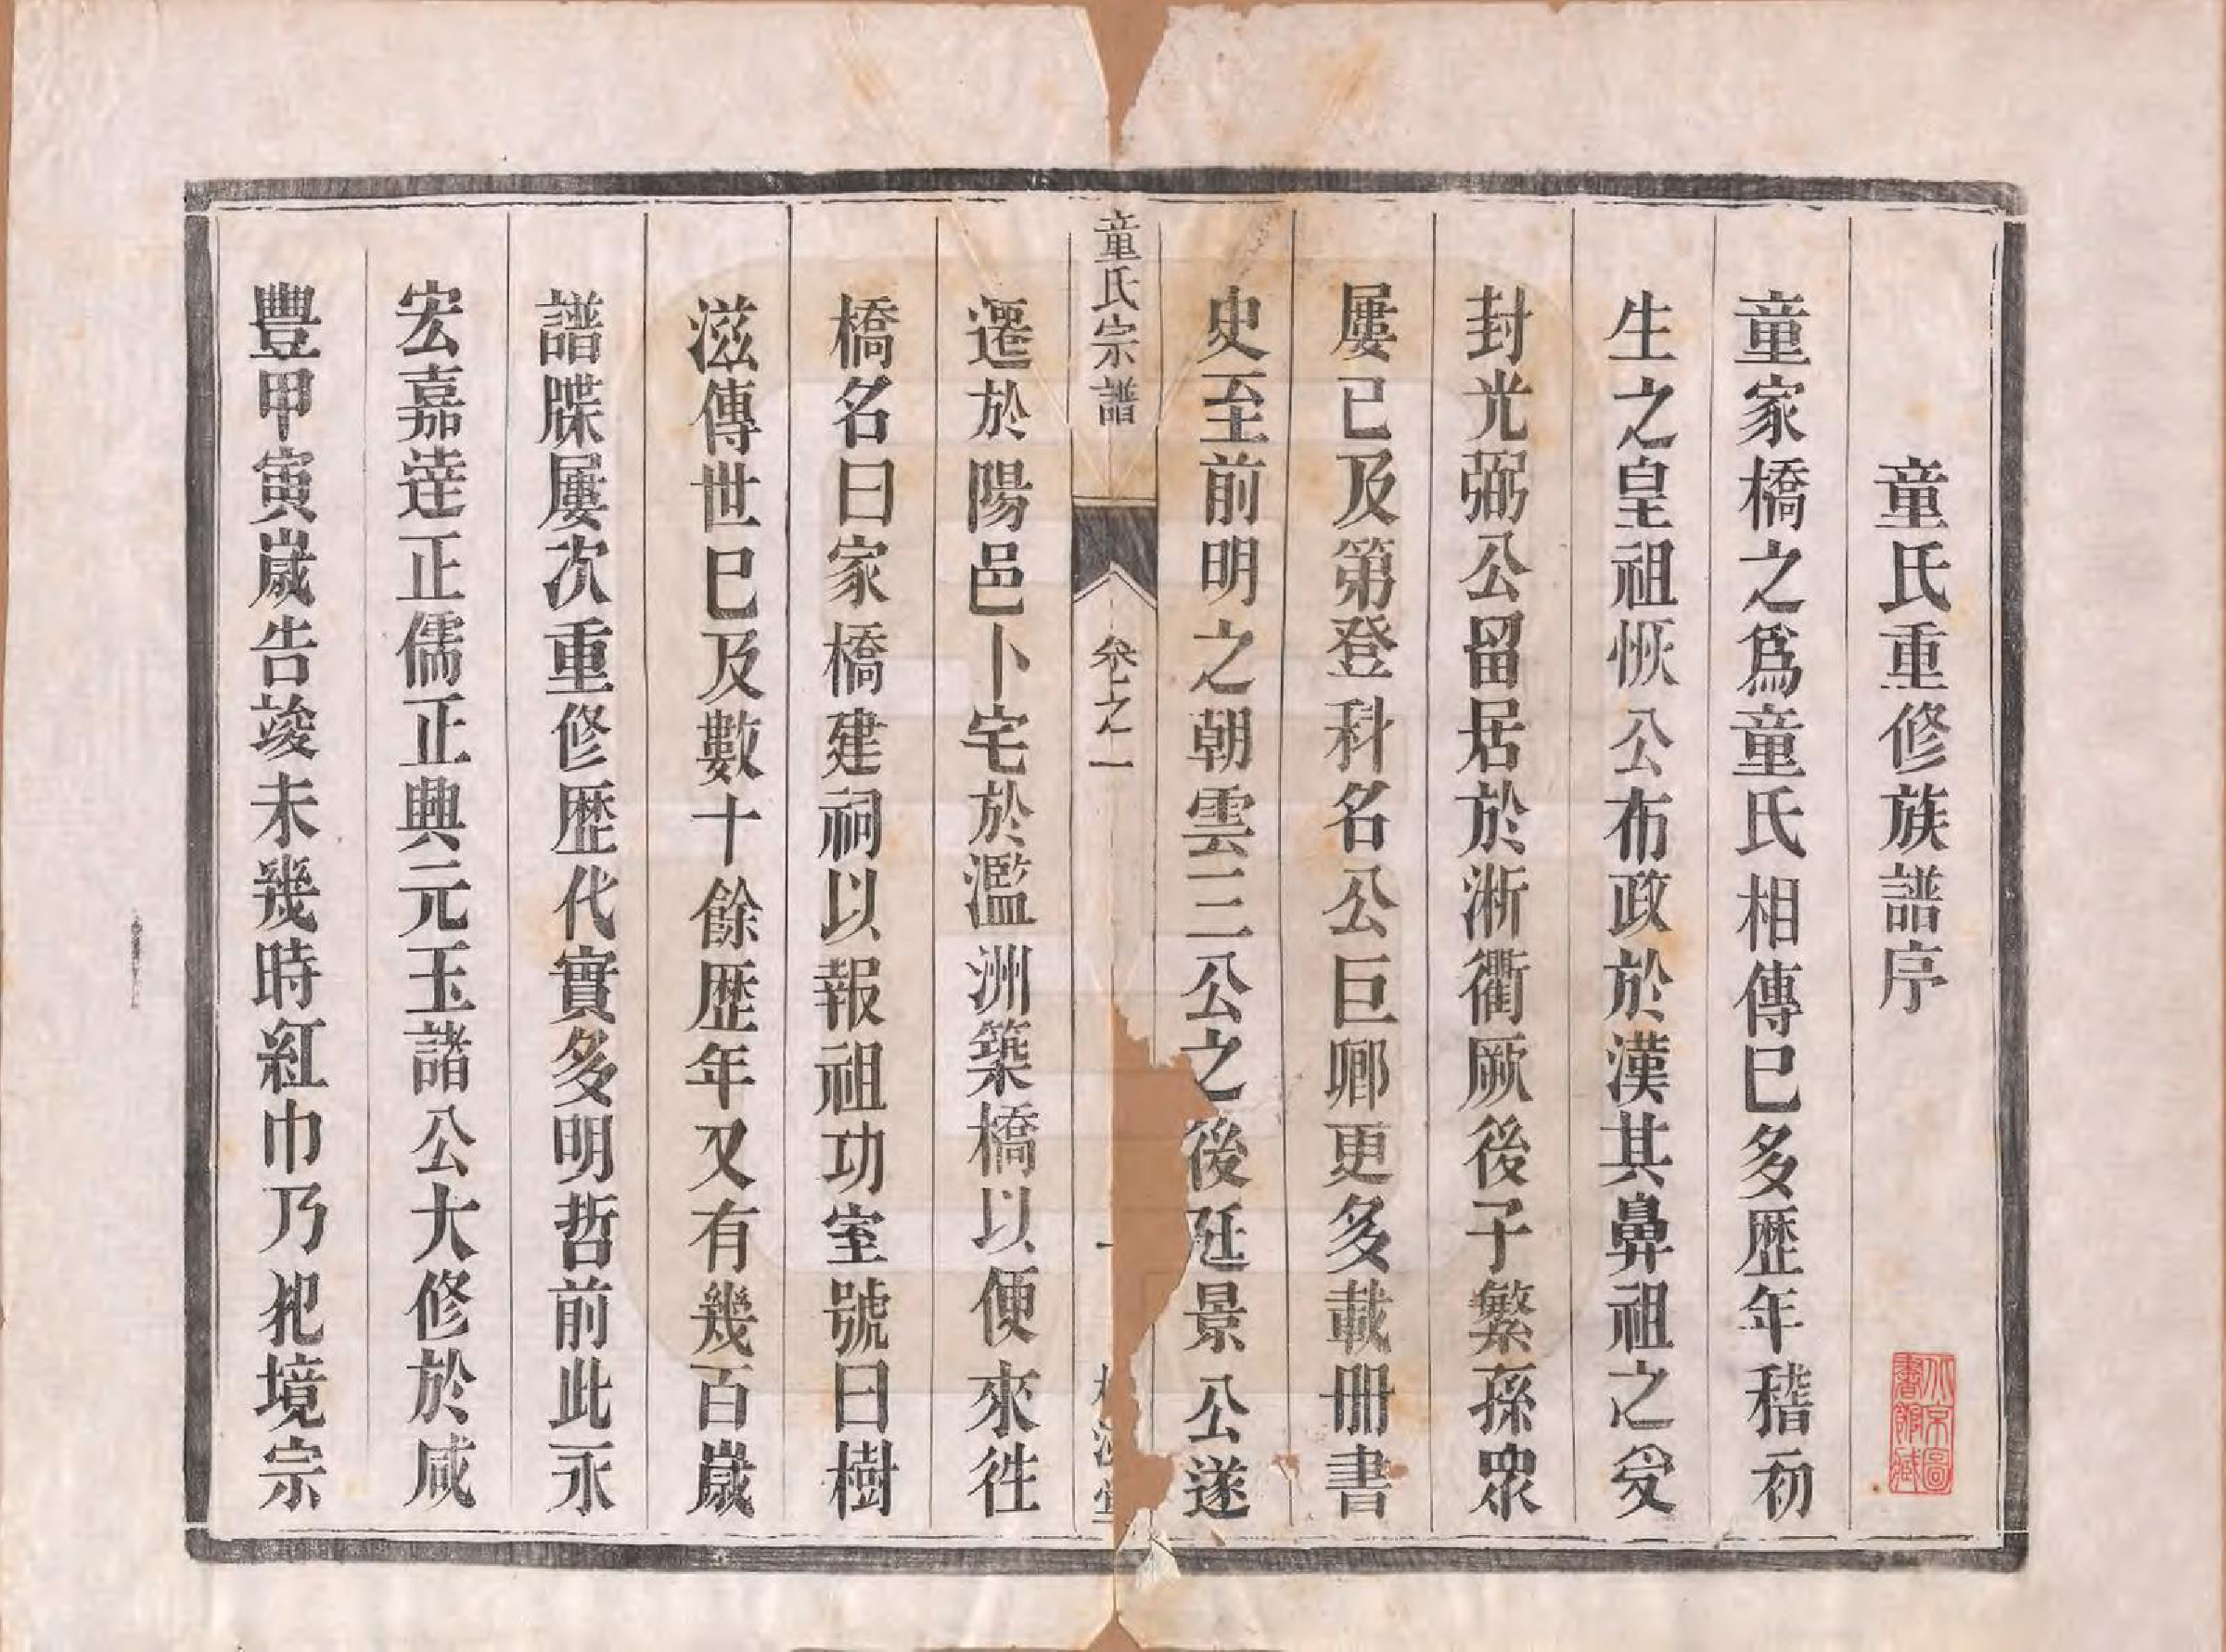 童氏重修族譜序
童家橋之爲童氏相傳巳多歴年稽初
生之皇祖恢公布政於漢其鼻祖之受
封光弼公留居於淅衢厥後子繁孫眾
屢已及第登科名公巨卿更多載册書
史至前明之朝雲三公之後廷景公遂
童氏宗譜
卷之一
一
遷於陽邑卜宅於濫洲築橋以便來徃
橋名曰家橋建祠以報祖功室號曰樹
滋傳世巳及數十餘歴年又有幾百歲
譜牒屢次重修歴代實多明哲前此永
宏嘉逵正儒正典元玉諸公大修於咸
豐甲寅歲告竣未幾時紅巾乃犯境宗
北京圖書館藏